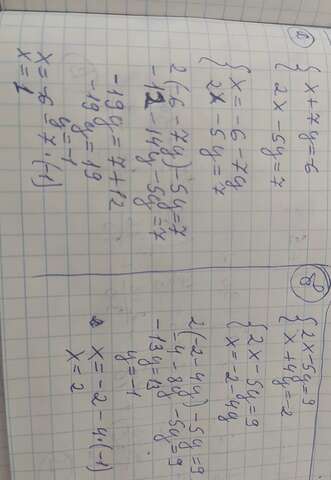 { x + 7y = -6
2x - 5y = 7
{ x = -6 - 7y
2x - 5y = 7
2(-6 - 7y) - 5y = 7
-12 - 14y - 5y = 7
-19y = 7 + 12
-19y = 19
y = -1
x = -6 - 7 · (-1)
x = 1
{ 2x - 5y = 9
x + 4y = -2
{ 2x - 5y = 9
x = -2 - 4y
2(-2 - 4y) - 5y = 9
-4 - 8y - 5y = 9
-13y = 13
y = -1
x = -2 - 4 · (-1)
x = 2